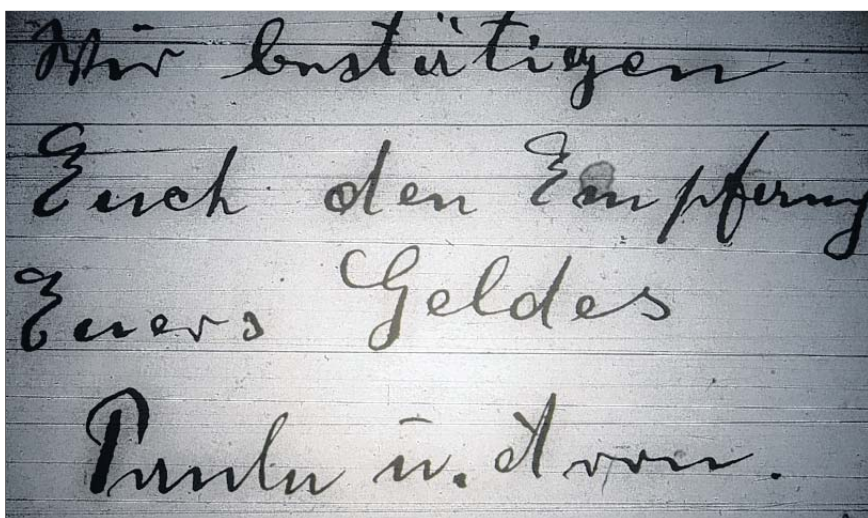 Wir bestätigen
Euch den Empfang
Euers Geldes
Paula u. Aron.